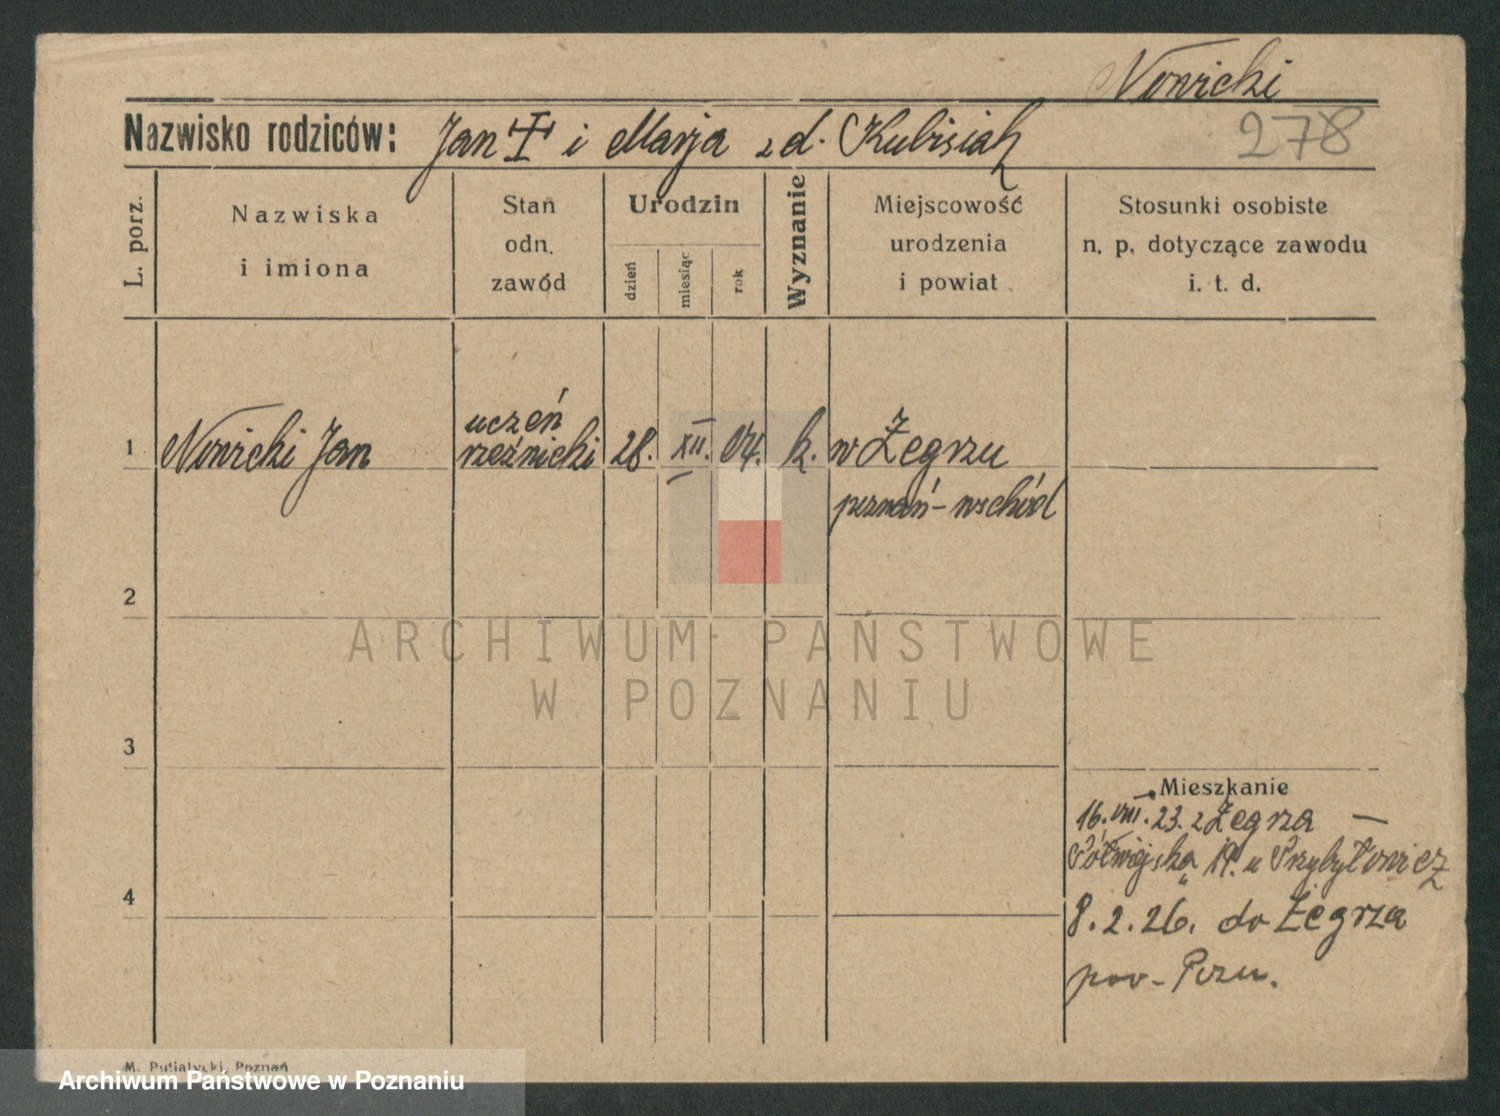 Nowicki
Nazwisko rodziców: Jan i Marja z d. Kubisiak
278
L. porz.
Nazwiska
i imiona
Stan
odn.
zawód
Urodzin
dzień
miesiąc
rok
Wyznanie
Miejscowość
urodzenia
i powiat
Stosunki osobiste
n. p. dotyczące zawodu
i. t. d.
1
Nowicki Jan
uczeń
rzeźnicki
28.
XII.
04.
k.
w Żegrzu
poznań-wschód
2
ARCHIWUM PAŃSTWOWE
W POZNANIU
3
Mieszkanie
16.VIII.23. z Żegrza —
Półwiejska 19. u Przybyłowicz
4
8.2.26. do Żegrza
pow-Pozn.
M. Putiatycki, Poznań
Archiwum Państwowe w Poznaniu